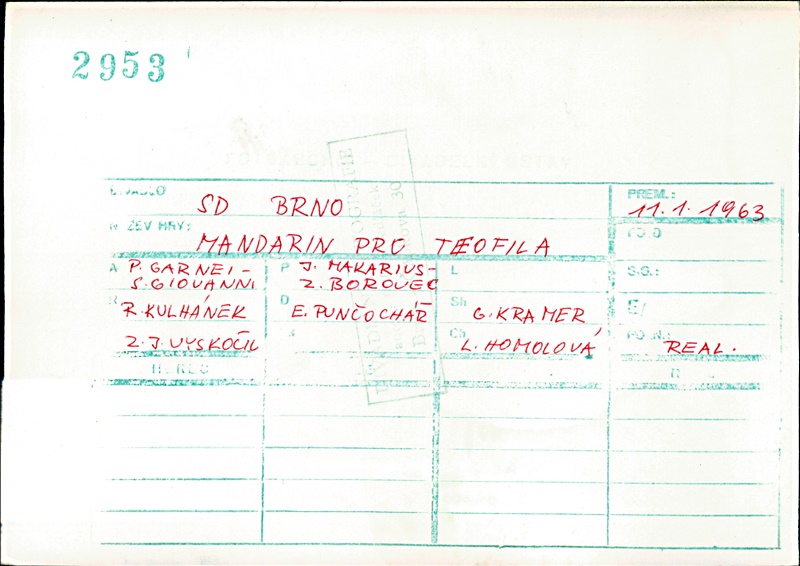 2953
DIVADLO SD BRNO PREM.: 11.1.1963
NÁZEV HRY: MANDARIN PRO TEOFILA
A P. GARNEI- P J. MAKARIUS- L S.G.:
S. GIOVANNI Z. BOROVEC
R R. KULHÁNEK D E. PUNČOCHÁŘ Sh G. KRAMER
Z. J. VYSKOČIL Ch L. HOMOLOVÁ REAL.